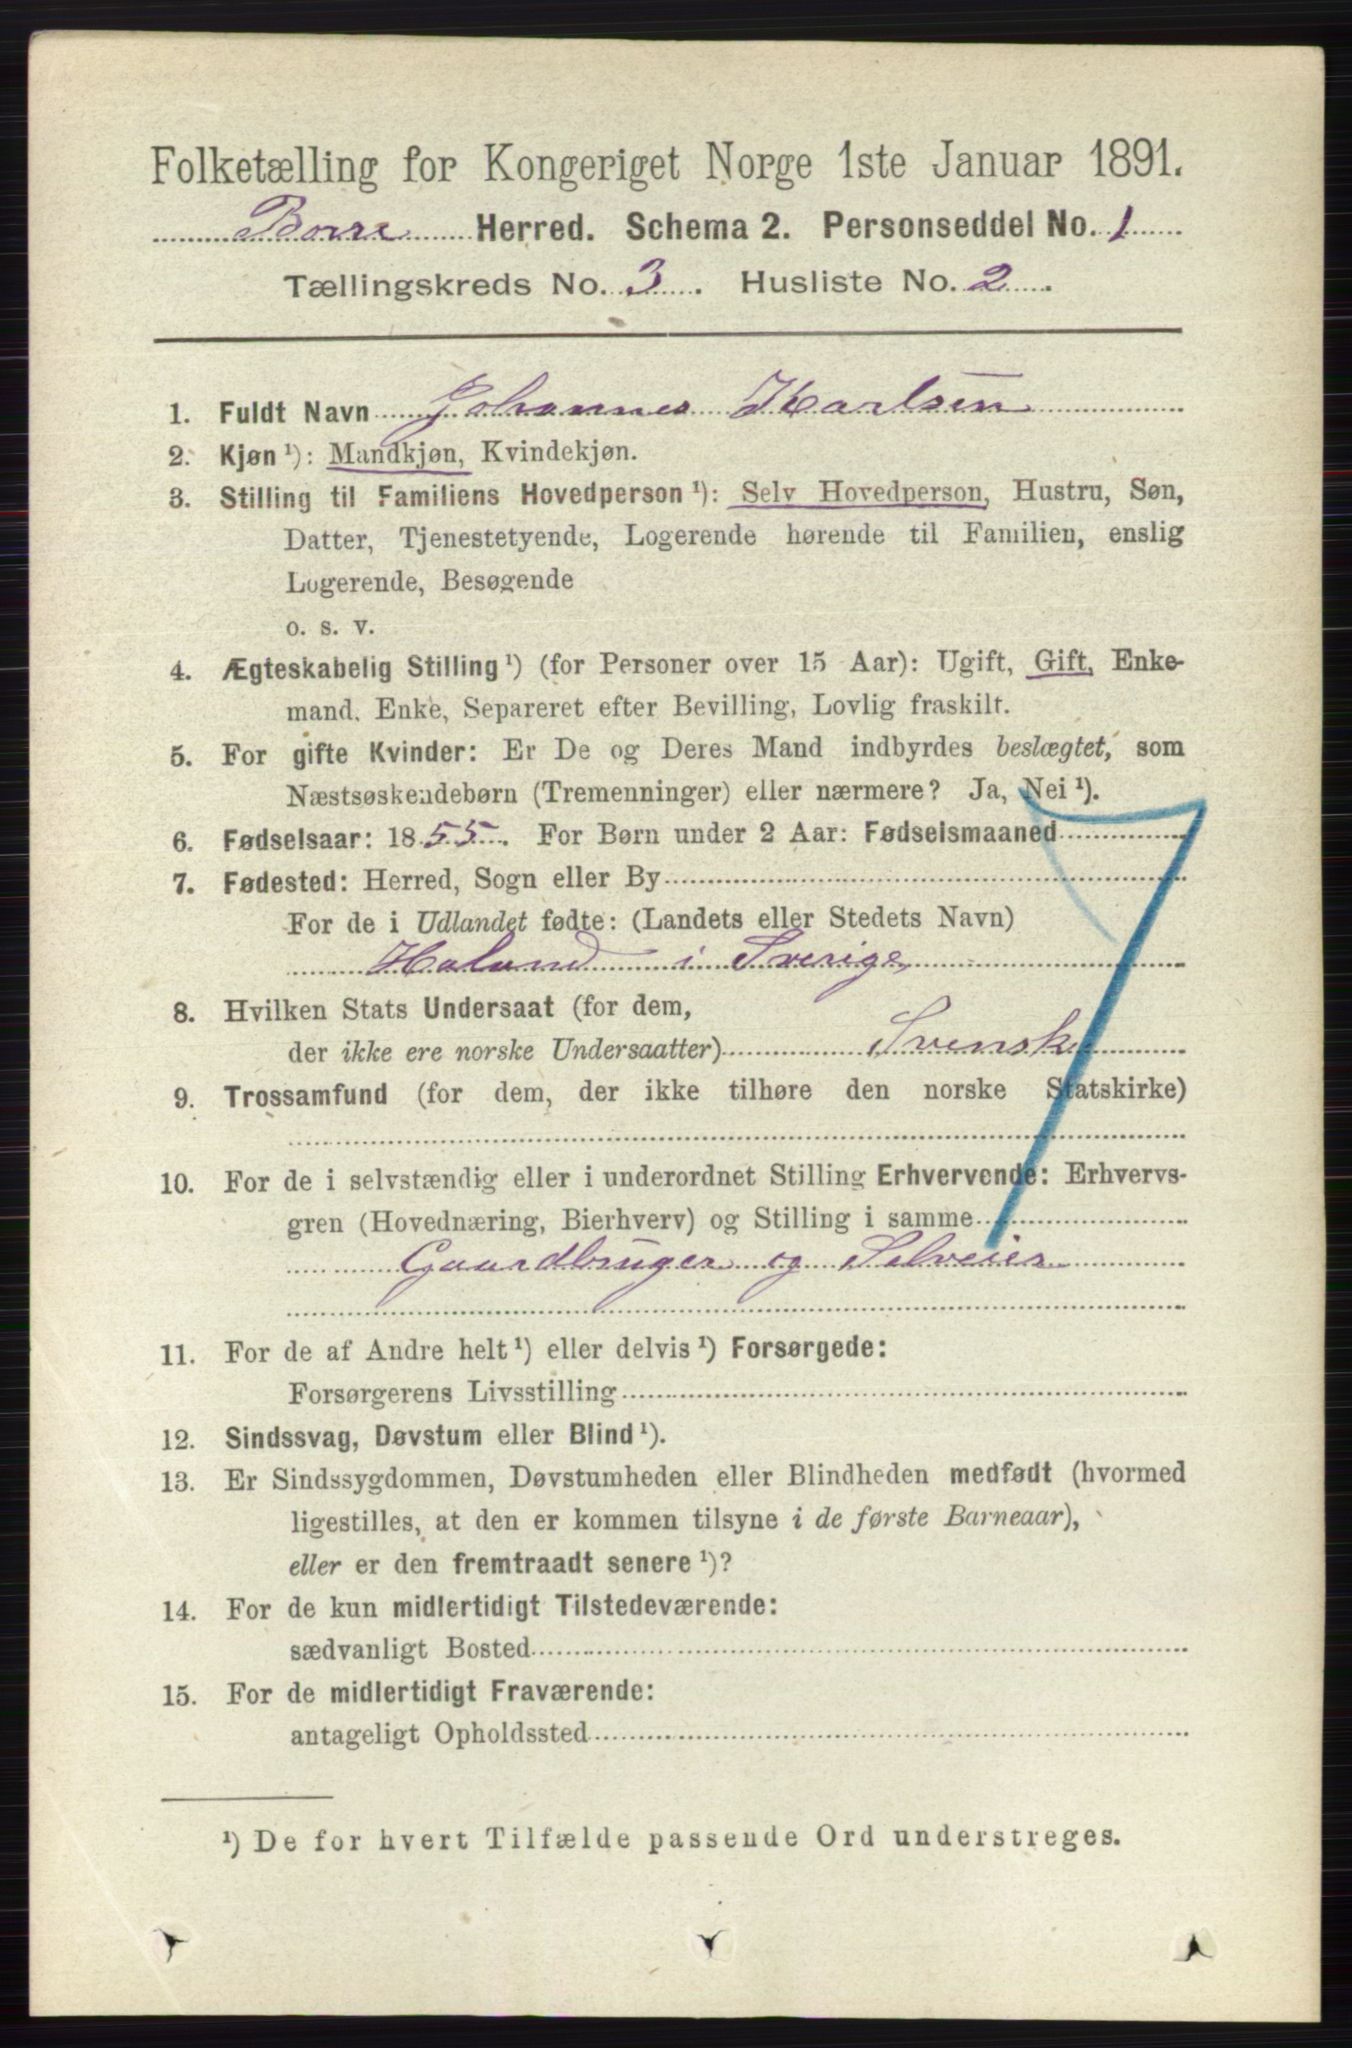 Folketælling for Kongeriget Norge 1ste Januar 1891.
Borre Herred. Schema 2. Personseddel No. 1
Tællingskreds No. 3. Husliste No. 2.
1. Fuldt Navn Johannes Karlsen
2. Kjøn ¹): Mandkjøn, Kvindekjøn.
3. Stilling til Familiens Hovedperson ¹): Selv Hovedperson, Hustru, Søn,
Datter, Tjenestetyende, Logerende hørende til Familien, enslig
Logerende, Besøgende
o. s. v.
4. Ægteskabelig Stilling ¹) (for Personer over 15 Aar): Ugift, Gift, Enke-
mand, Enke, Separeret efter Bevilling, Lovlig fraskilt.
5. For gifte Kvinder: Er De og Deres Mand indbyrdes beslægtet, som
Næstsøskendebørn (Tremenninger) eller nærmere? Ja, Nei ¹).
6. Fødselsaar: 1855. For Børn under 2 Aar: Fødselsmaaned
7. Fødested: Herred, Sogn eller By
For de i Udlandet fødte: (Landets eller Stedets Navn)
Haland i Sverige
8. Hvilken Stats Undersaat (for dem,
der ikke ere norske Undersaatter) Svensk
9. Trossamfund (for dem, der ikke tilhøre den norske Statskirke)
10. For de i selvstændig eller i underordnet Stilling Erhvervende: Erhvervs-
gren (Hovednæring, Bierhverv) og Stilling i samme
Gaardbruger og Selveier
11. For de af Andre helt ¹) eller delvis ¹) Forsørgede:
Forsørgerens Livsstilling
12. Sindssvag, Døvstum eller Blind ¹).
13. Er Sindssygdommen, Døvstumheden eller Blindheden medfødt (hvormed
ligestilles, at den er kommen tilsyne i de første Barneaar),
eller er den fremtraadt senere ¹)?
14. For de kun midlertidigt Tilstedeværende:
sædvanligt Bosted
15. For de midlertidigt Fraværende:
antageligt Opholdssted
¹) De for hvert Tilfælde passende Ord understreges.